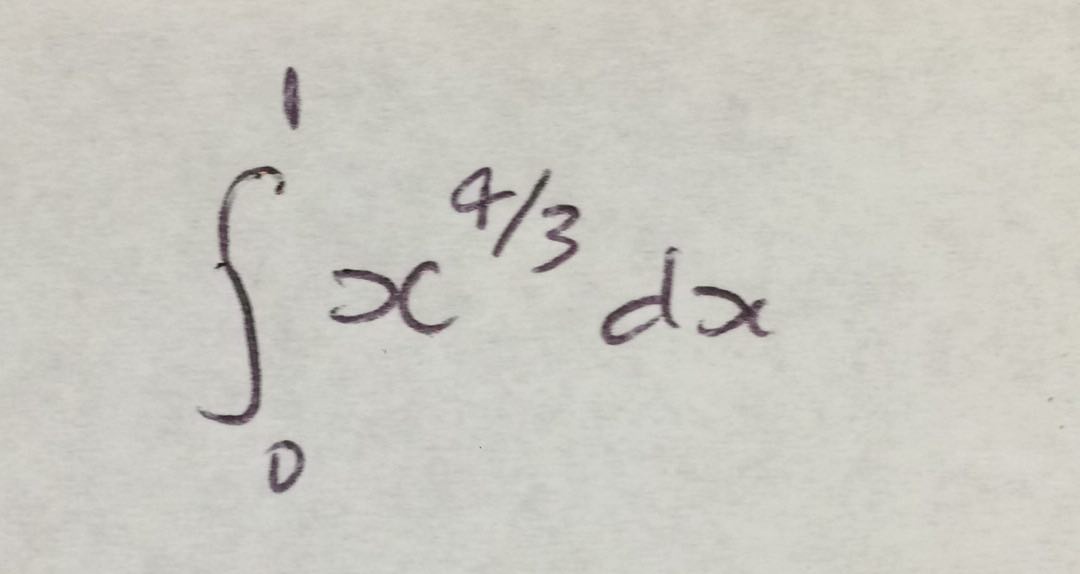 ∫₀¹ x^{4/3} dx